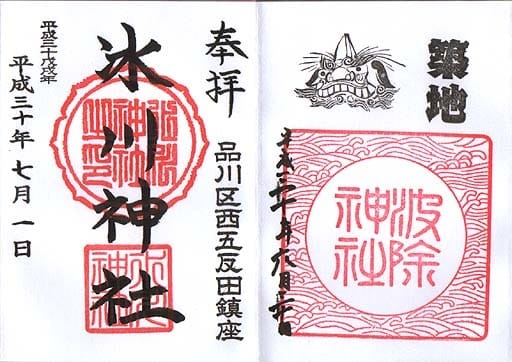 築地
波除
神社
平成三十年六月三十日
奉拝
品川区西五反田鎮座
氷川神社
平成三十戊戌年
平成三十年 七月 一日